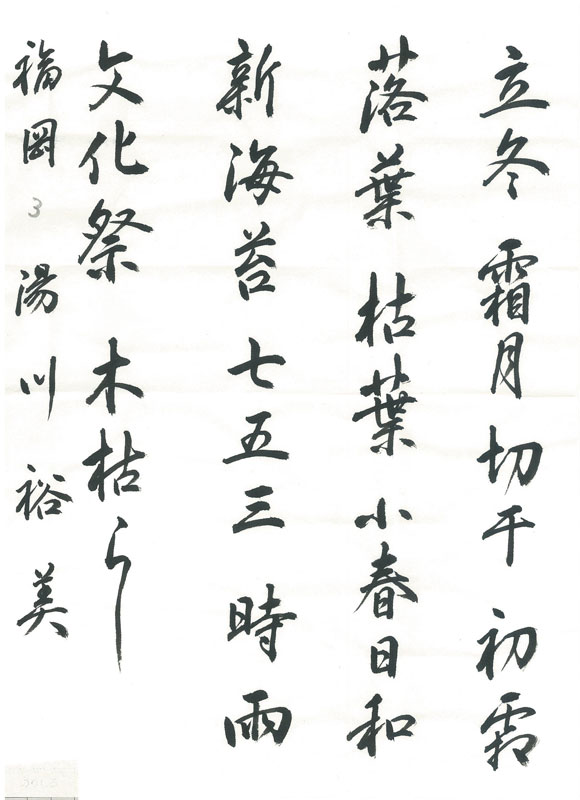 立冬 霜月 切干 初霜
落葉 枯葉 小春日和
新海苔 七五三 時雨
文化祭 木枯らし
福岡 3 湯川 裕美